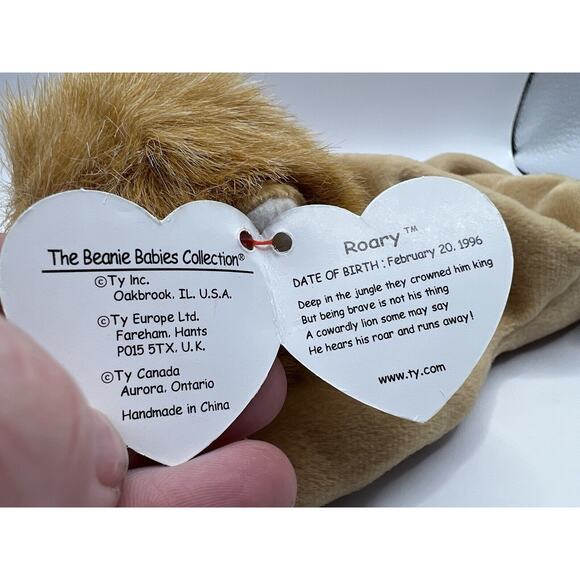 The Beanie Babies Collection®
©Ty Inc.
Oakbrook, IL, U.S.A.
©Ty Europe Ltd.
Fareham, Hants
P015 5TX, U.K.
©Ty Canada
Aurora, Ontario
Handmade in China
Roary™
DATE OF BIRTH : February 20, 1996
Deep in the jungle they crowned him king
But being brave is not his thing
A cowardly lion some may say
He hears his roar and runs away!
www.ty.com